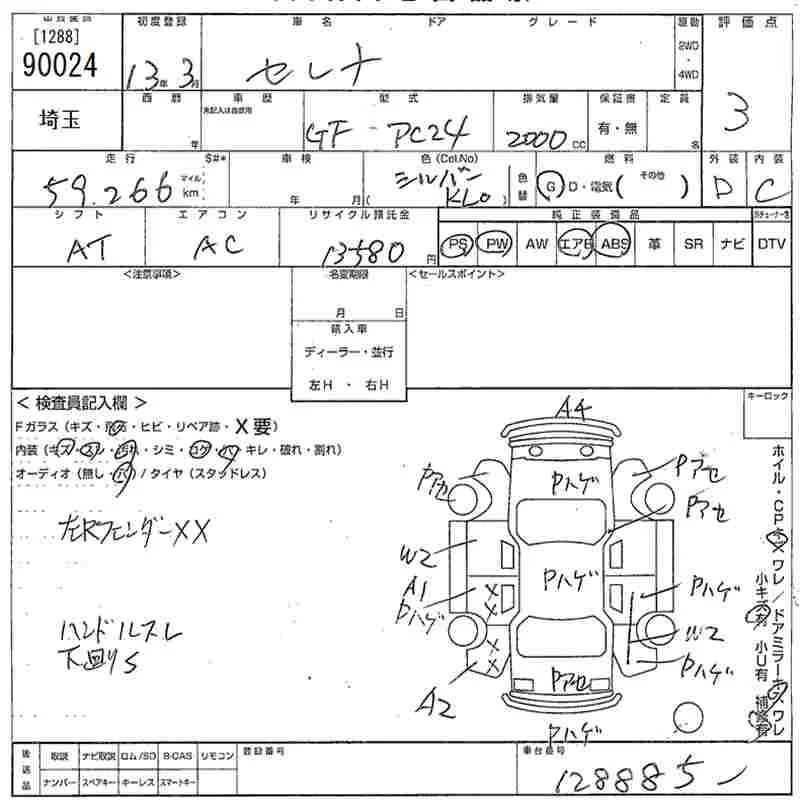 [1288]
90024
初度登録
車名 ドア グレード
駆動
評価点
13年 3月
セレナ
2WD
・
4WD
埼玉
西暦
年
車歴
未記入は自家用
型式
GF - PC24
排気量
2000 CC
保証書
有・無
定員
名
3
走行 $#*
59.266
マイル
km
車検
年 月(
色(Col.No)
シルバー
KL0 )
色替
燃料
G D・電気( その他 )
外装
D
内装
C
シフト
AT
エアコン
AC
リサイクル預託金
13580 円
純正装備品
PS PW AW エアB ABS 革 SR ナビ DTV
<注意事項>
名変期限
月 日
輸入車
ディーラー・並行
左H ・ 右H
<セールスポイント>
キーロック
< 検査員記入欄 >
Fガラス (キズ・飛石・ヒビ・リペア跡・X要)
内装 (キズ・スレ・汚れ・シミ・コゲ・穴・キレ・破れ・割れ)
オーディオ (無し・穴) / タイヤ (スタッドレス)
左Rフェンダー XX
ハンドルスレ
下廻りS
A4
Pハゲ
Pアセ
Pアセ
Pアセ
W2
A1
Pハゲ
Pハゲ
Pハゲ
W2
Pハゲ
X
X
X
X
A2
Pアセ
Pハゲ
ホイル・CPキズワレ / ドアミラーキズワレ
小キズ有 小U有 補修有
後送品
取説 ナビ取説 ロム/SD B-CAS リモコン
ナンバー スペアキー キーレス スマートキー
登録番号
車台番号
128885